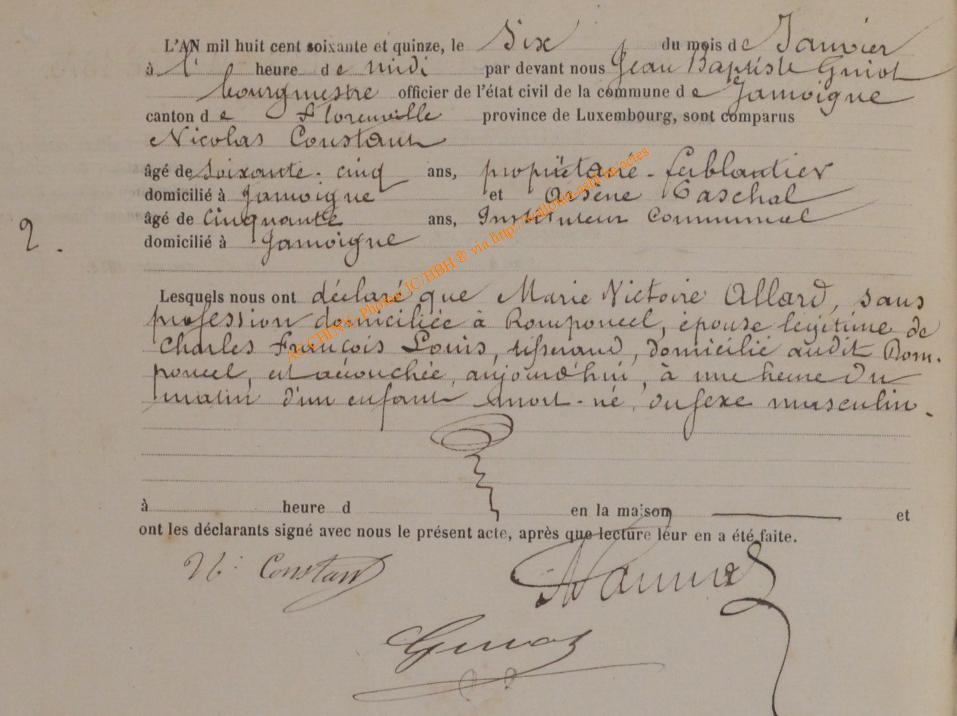 L'AN mil huit cent soixante et quinze, le Six du mois de Janvier
à l' heure de midi par devant nous Jean Baptiste Guiot
bourgmestre officier de l'état civil de la commune de Jamoigne
canton de Florenville province de Luxembourg, sont comparus
Nicolas Constant
âgé de soixante-cinq ans, propriétaire-ferblantier
domicilié à Jamoigne et Arsène
âgé de cinquante ans, Instituteur Communal
domicilié à Jamoigne
2.
Lesquels nous ont déclaré que Marie Victoire Allard, sans
profession domiciliée à Romponcel, épouse légitime de
Charles François Louis, tisserand, domicilié audit Rom-
poncel, est accouchée, aujourd'hui, à une heure du
matin d'un enfant mort-né, du sexe masculin.
à heure d en la maison et
ont les déclarants signé avec nous le présent acte, après que lecture leur en a été faite.
N. Constant
Guiot
ARCHIVE, Photos JC/HBH ® via